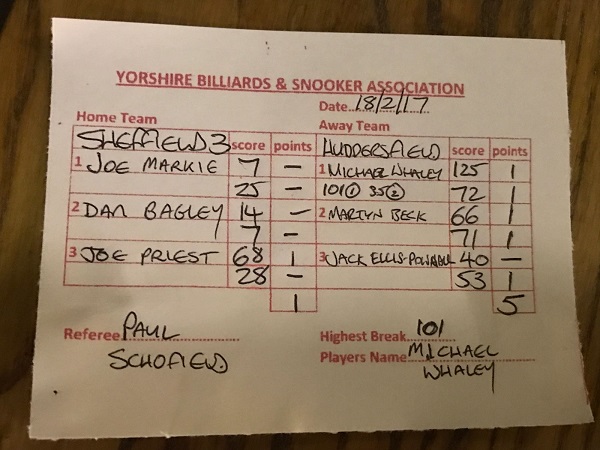 YORSHIRE BILLIARDS & SNOOKER ASSOCIATION
Date 18/2/17
Home Team Away Team
SHEFFIELD 3 score points HUDDERSFIELD score points
1 JOE MARKIE 7 — 1 MICHAEL WHALEY 125 1
25 — 101① 35② 72 1
2 DAN BAGLEY 14 — 2 MARTYN BECK 66 1
7 — 71 1
3 JOE PRIEST 68 1 3 JACK 40 —
28 — 53 1
1 5
Referee PAUL Highest Break 101
SCHOFIELD Players Name MICHAEL
WHALEY